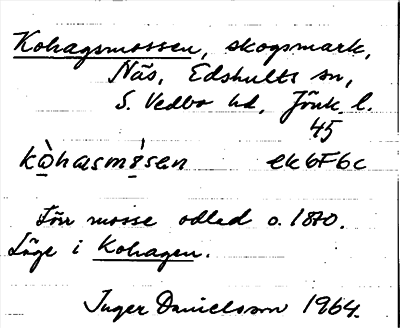 Kohagsmossen, skogsmark,
Näs, Edshults sn,
S. Vedbo hd, Jönk. l.
45
kò̠hasmò̠sen ek 6F6c
Förr mosse odlad o. 1870.
Låge i Kohagen.
Inger Danielsson 1964.